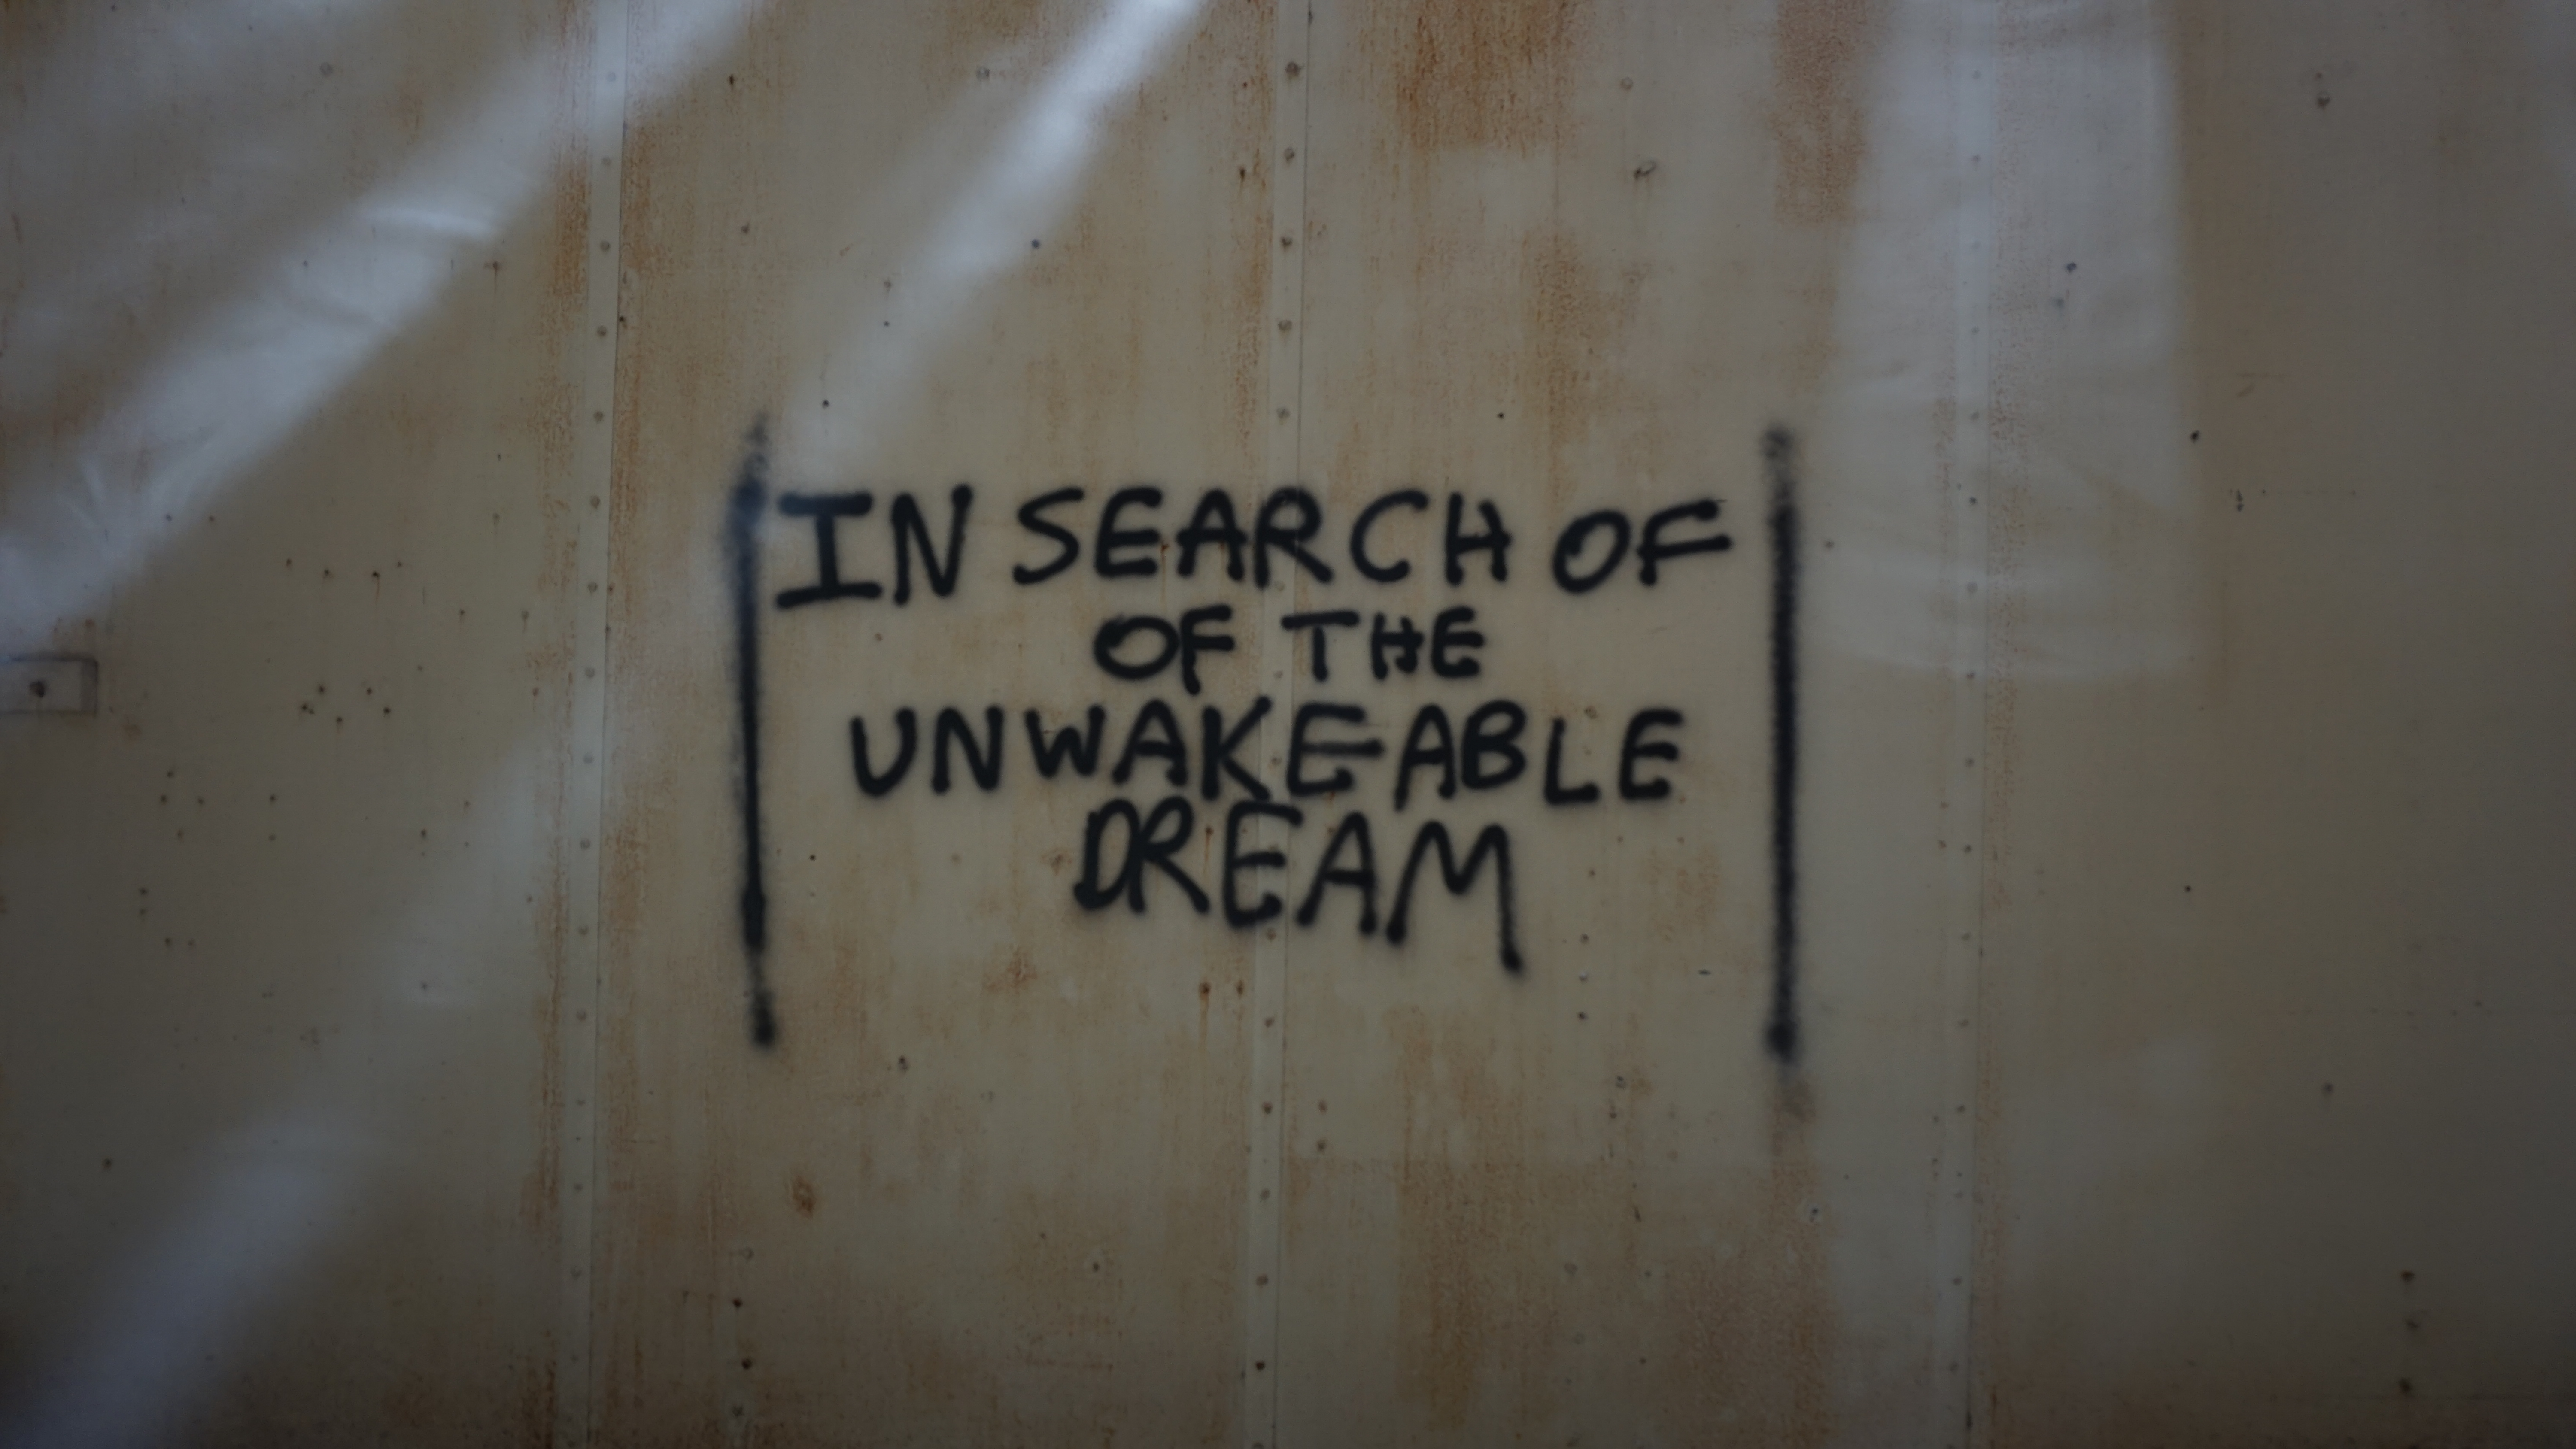 IN SEARCH OF
OF THE
UNWAKEABLE
DREAM